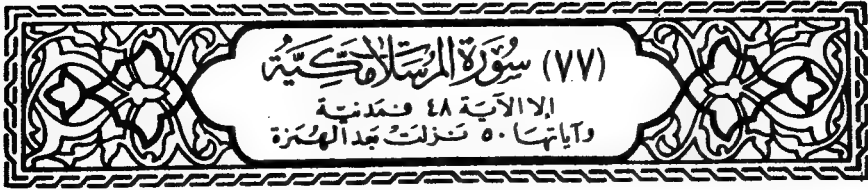 (٧٧) سُورَةُ المُرسَلات مَكِّيَّة
إلا الآية ٤٨ فمدنية
وآياتها ٥٠ نزلت بعد الهمزة